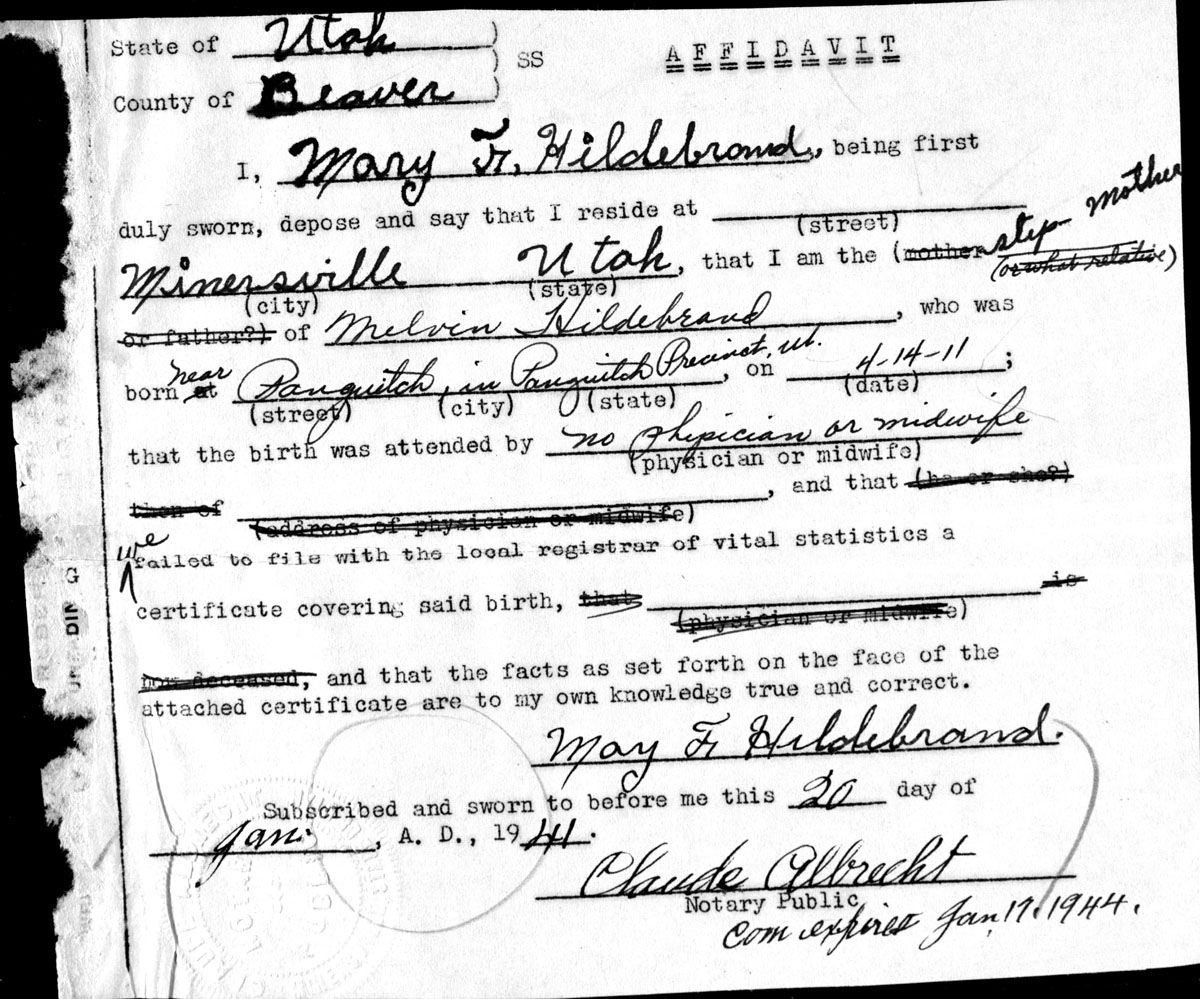 State of Utah ) SS AFFIDAVIT
County of Beaver )
I, Mary F. Hildebrand, being first
duly sworn, depose and say that I reside at
(street)
Minersville Utah, that I am the (mother step mother
(city) (state) (or what relative)
or father?) of Melvin Hildebrand, who was
born near at Panguitch, in Panguitch Precinct, Ut., on 4-14-11;
(street) (city) (state) (date)
that the birth was attended by no phipician or midwife
(physician or midwife)
then of , and that (he or she?)
(address of physician or midwife)
we failed to file with the local registrar of vital statistics a
certificate covering said birth, that is
(physician or midwife)
now deceased, and that the facts as set forth on the face of the
attached certificate are to my own knowledge true and correct.
May F. Hildebrand.
Subscribed and sworn to before me this 20 day of
Jan., A. D., 1941.
Claude Albrecht
Notary Public
Com expires Jan 17. 1944.